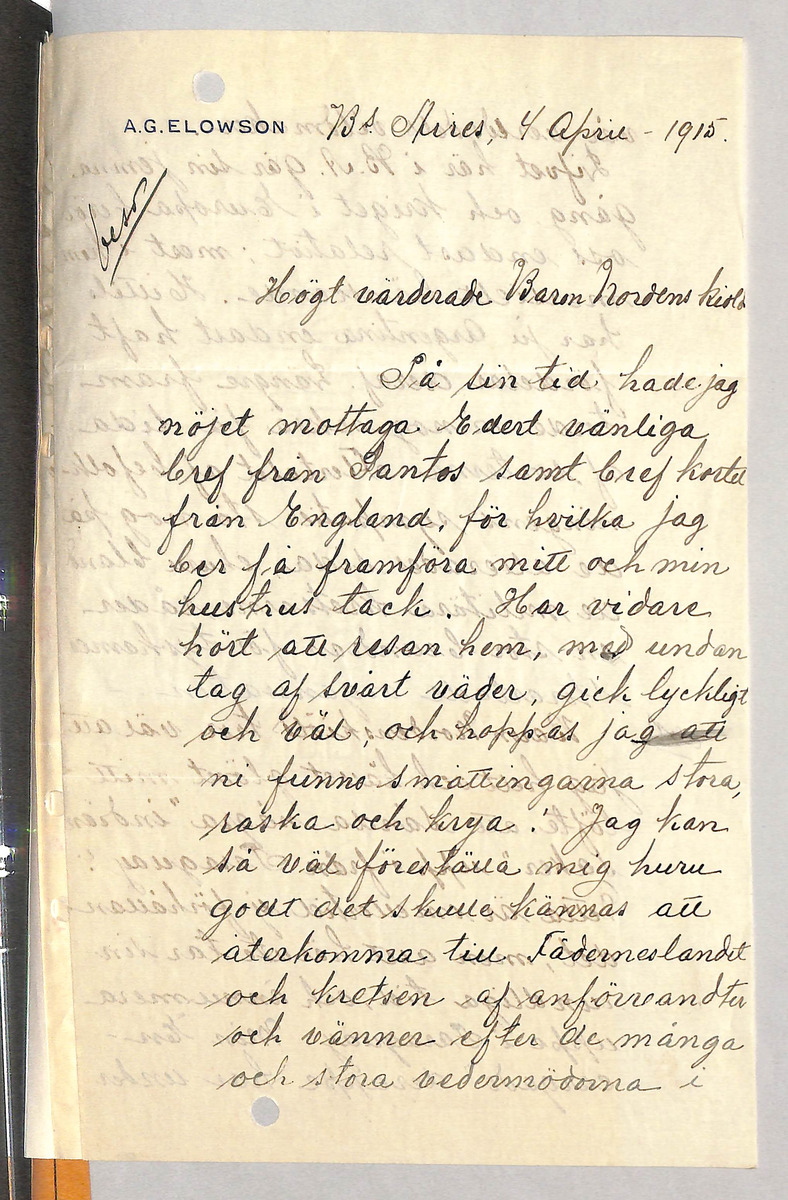 A.G. ELOWSON Bs Aires, 4 April - 1915.
besv
Högt värderade Baron Nordenskiöld
På sin tid hade jag
nöjet mottaga Edert vänliga
bref från Santos samt brefkortet
från England, för hvilka jag
ber få framföra mitt och min
hustrus tack. Har vidare
hört att resan hem, med undan
tag af svårt väder, gick lyckligt
och väl, och hoppas jag att
ni funno småttingarna stora,
raska och krya! Jag kan
så väl föreställa mig huru
godt det skulle kännas att
återkomma till Fäderneslandet
och kretsen af anförvandter
och vänner efter de många
och stora vedermödorna i